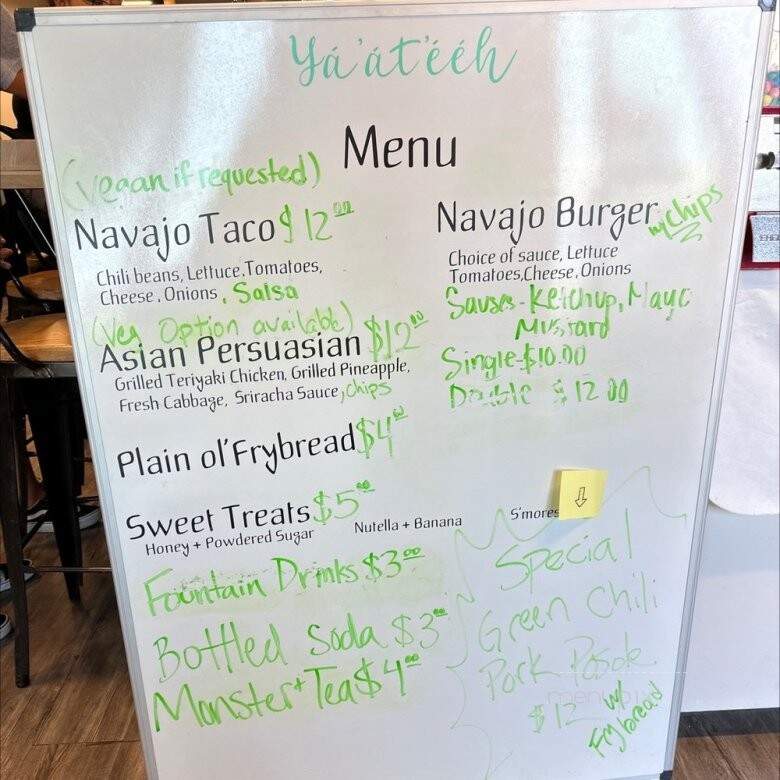 Yá'át'ééh
Menu
(vegan if requested)
Navajo Taco $12.00
Chili beans, Lettuce, Tomatoes,
Cheese, Onions, Salsa
(Veg Option available)
Asian Persuasian $12.00
Grilled Teriyaki Chicken, Grilled Pineapple,
Fresh Cabbage, Sriracha Sauce, chips
Plain ol' Frybread $4.00
Sweet Treats $5.00
Honey + Powdered Sugar
Nutella + Banana
S'mores
Fountain Drinks $3.00
Bottled Soda $3.00
Monster + Tea $4.00
Navajo Burger w/chips
Choice of sauce, Lettuce
Tomatoes, Cheese, Onions
Sauses - Ketchup, Mayo
Mustard
Single - $10.00
Double $12.00
Special
Green Chili
Pork Posole
$12 w/
Frybread